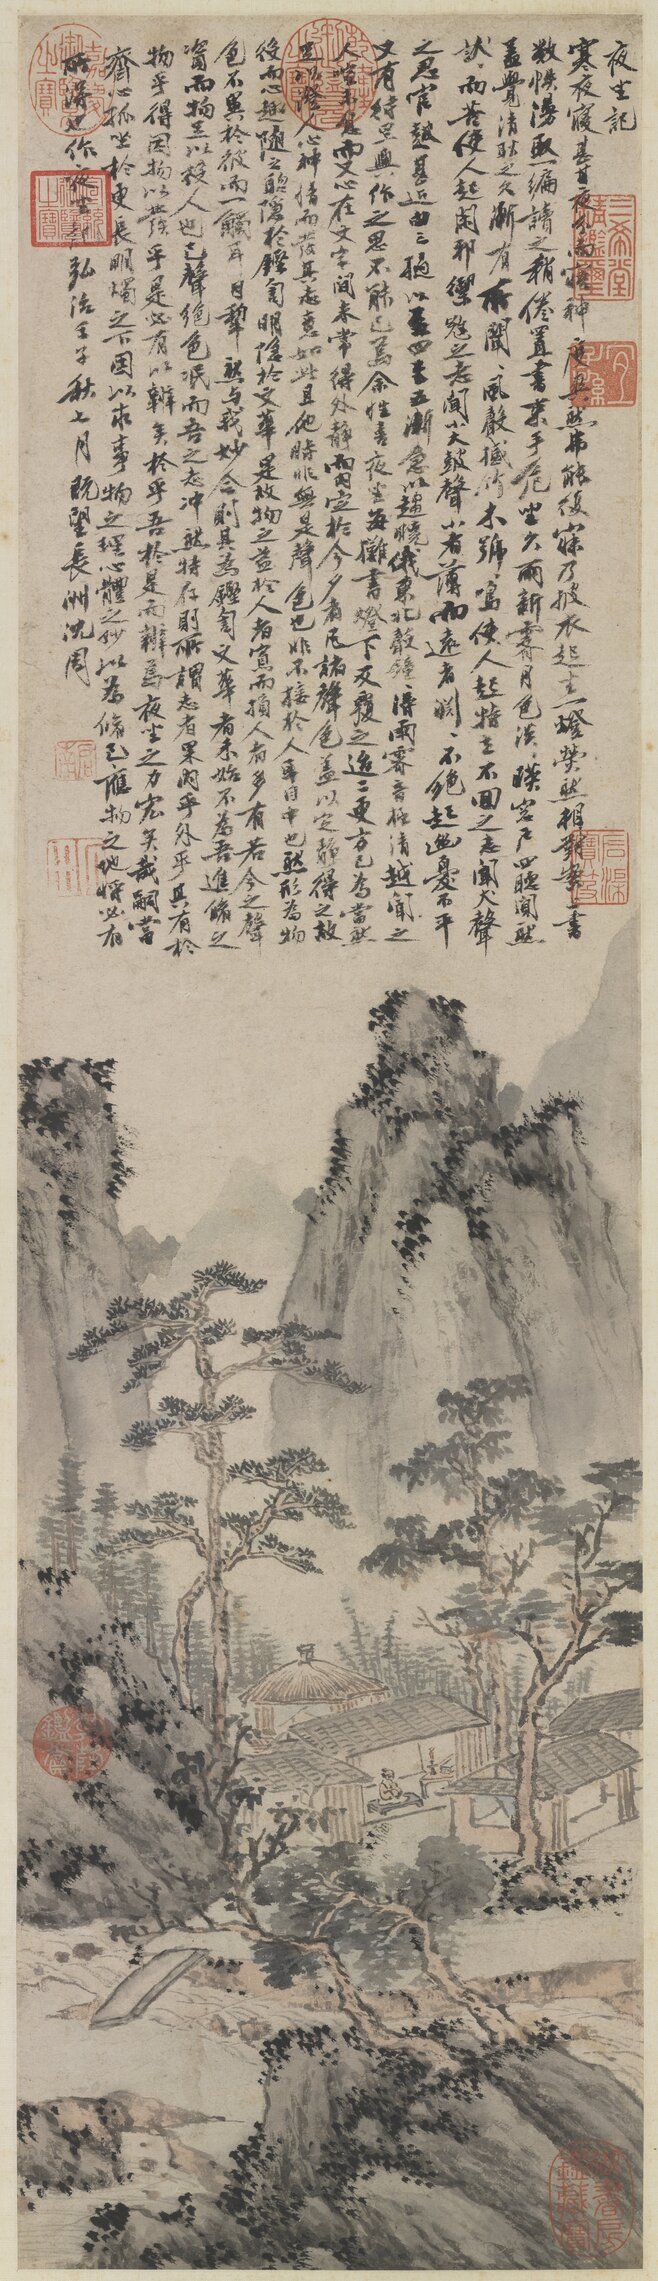 夜坐記
寒夜寢甚甘夜分而寤神度爽然弗能復寐乃披衣起坐一燈熒然相對案上書
數帙漫取一編讀之稍倦置書束手危坐久雨新霽月色淡淡暎窗戶四聽闃然
蓋覺清耿之久漸有所聞聞風聲撼竹木號號鳴使人起特立不回之志聞犬聲
狀狀而苦使人起閑邪禦寇之志聞小大鼓聲小者薄而遠者淵淵不絕起幽憂不平
之思官鼓甚近由三撾以至四至五漸急以趨曉俄東北聲鐘鐘得雨霽音極清越聞之
又有待旦興作之思不能已焉余性喜夜坐每攤書燈下反覆之迨二更方已為當然
人喧未息而又心在文字間未常得外靜而內定於今夕者凡諸聲色蓋以定靜得之故
足以澄人心神情而發其志意如此且他時非無是聲色也非不接於人耳目中也然形為物
役而心趣隨之聰隱於鏗訇明隱於文華是故物之益於人者寡而損人者多有若今之聲
色不異於彼而一觸耳目犁然與我妙合則其為鏗訇文華者未始不為吾進脩之
資而物足以役人也已聲絕色泯而吾之志沖然特存則所謂志者果內乎外乎其有於
物乎得因物以發乎是必有以辨矣於乎吾於是而辨焉夜坐之力宏矣哉嗣當
齋心孤坐於更長明燭之下因以求事物之理心體之妙以為脩己應物之地將必有
所得也作夜坐記弘治壬子秋七月既望長洲沈周
三希堂精鑑璽
宜子孫
石渠寶笈
乾隆御覽之寶
嘉慶御覽之寶
乾隆鑑賞
啟南
御書房鑑藏寶